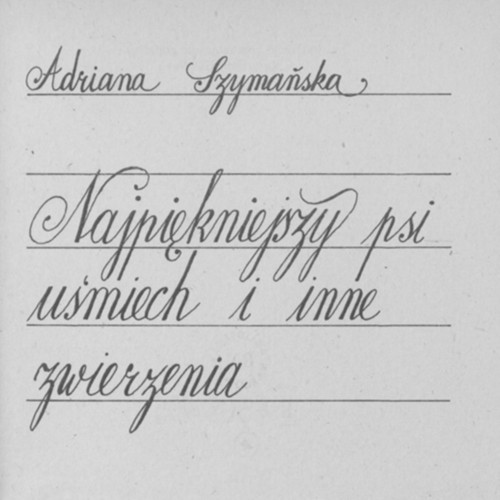 Adriana Szymańska
Najpiękniejszy psi
uśmiech i inne
zwierzenia